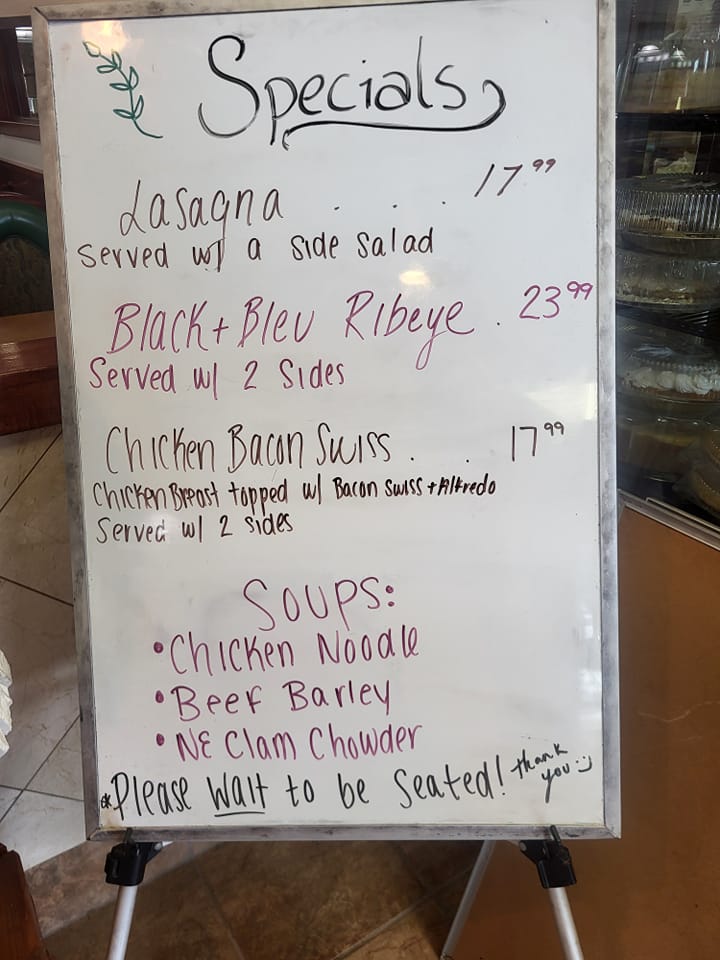 Specials
Lasagna . . . 17.99
Served w/ a side salad
Black + Bleu Ribeye . 23.99
Served w/ 2 Sides
Chicken Bacon Swiss . . 17.99
Chicken Breast topped w/ Bacon Swiss + Alfredo
Served w/ 2 sides
Soups:
• Chicken Noodle
• Beef Barley
• NE Clam Chowder
*Please Wait to be Seated! thank you :)